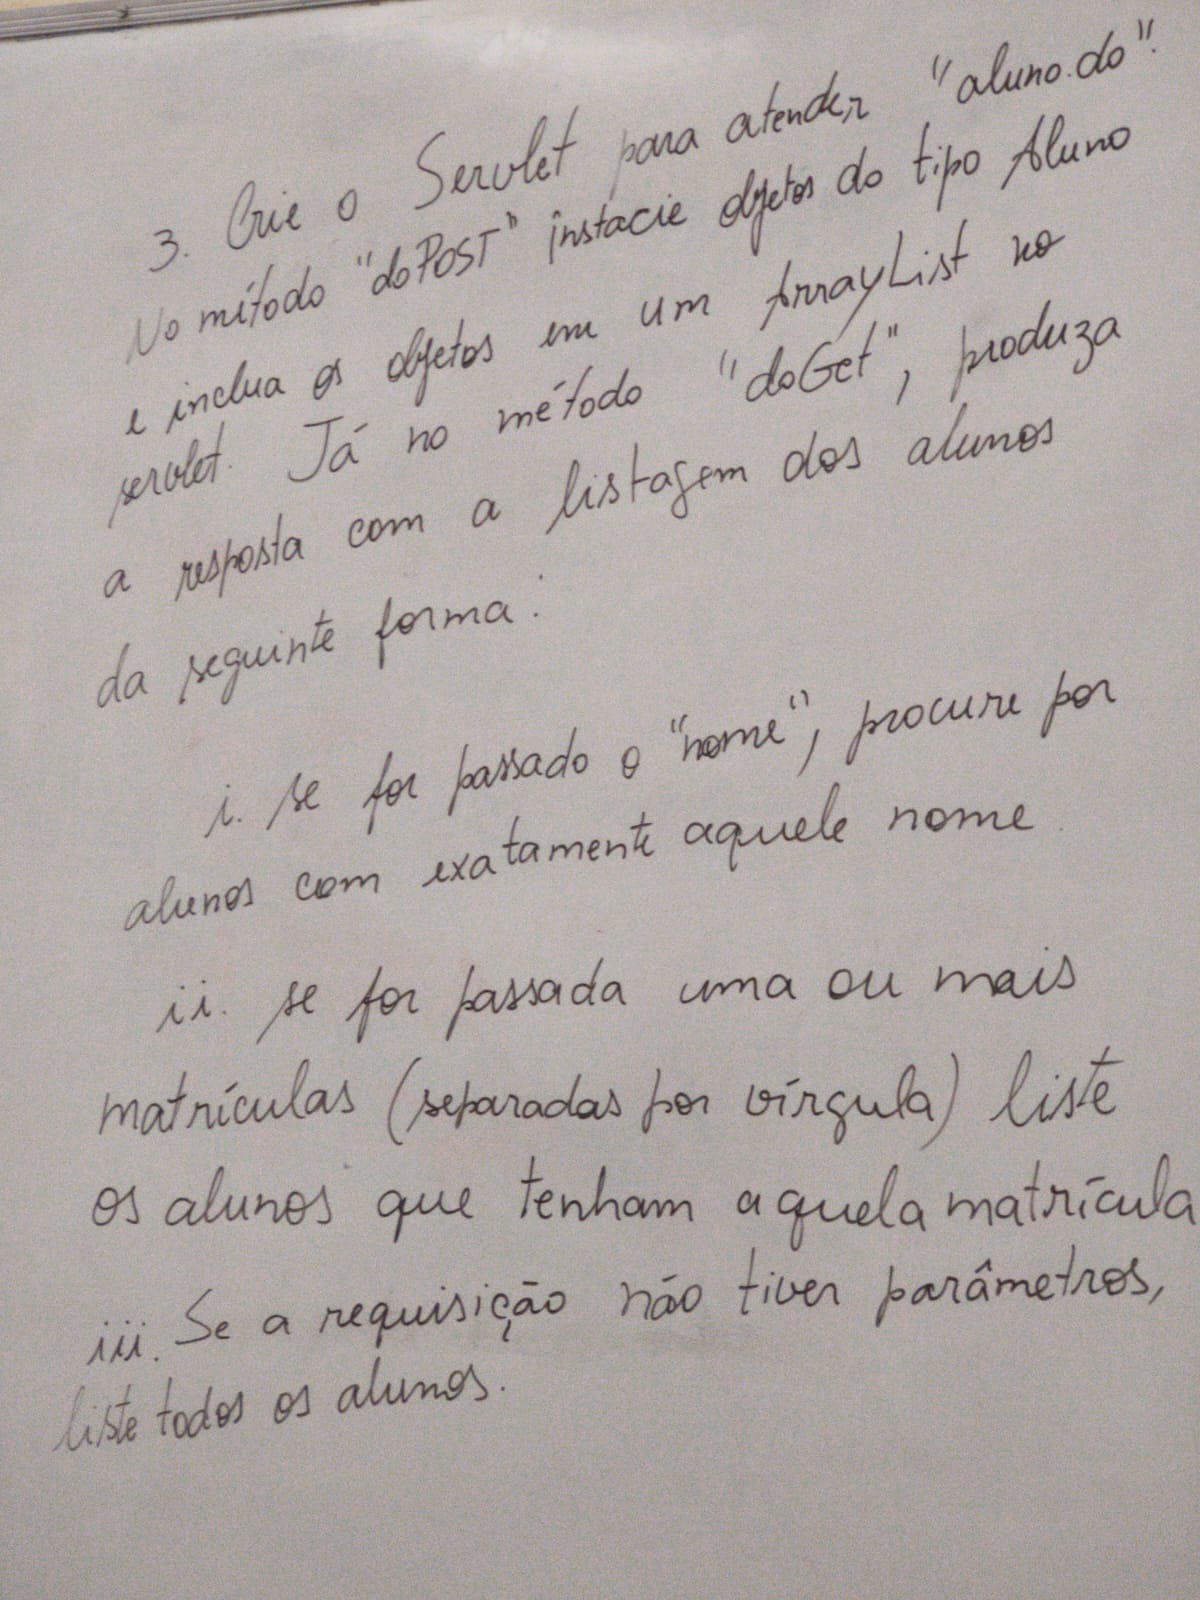 3. Crie o Servlet para atender "aluno.do".
No método "doPOST" instacie objetos do tipo Aluno
e inclua os objetos em um ArrayList no
servlet. Já no método "doGet", produza
a resposta com a listagem dos alunos
da seguinte forma:
i. se for passado o "nome", procure por
alunos com exatamente aquele nome
ii. se for passada uma ou mais
matrículas (separadas por vírgula) liste
os alunos que tenham aquela matrícula
iii. Se a requisição não tiver parâmetros,
liste todos os alunos.